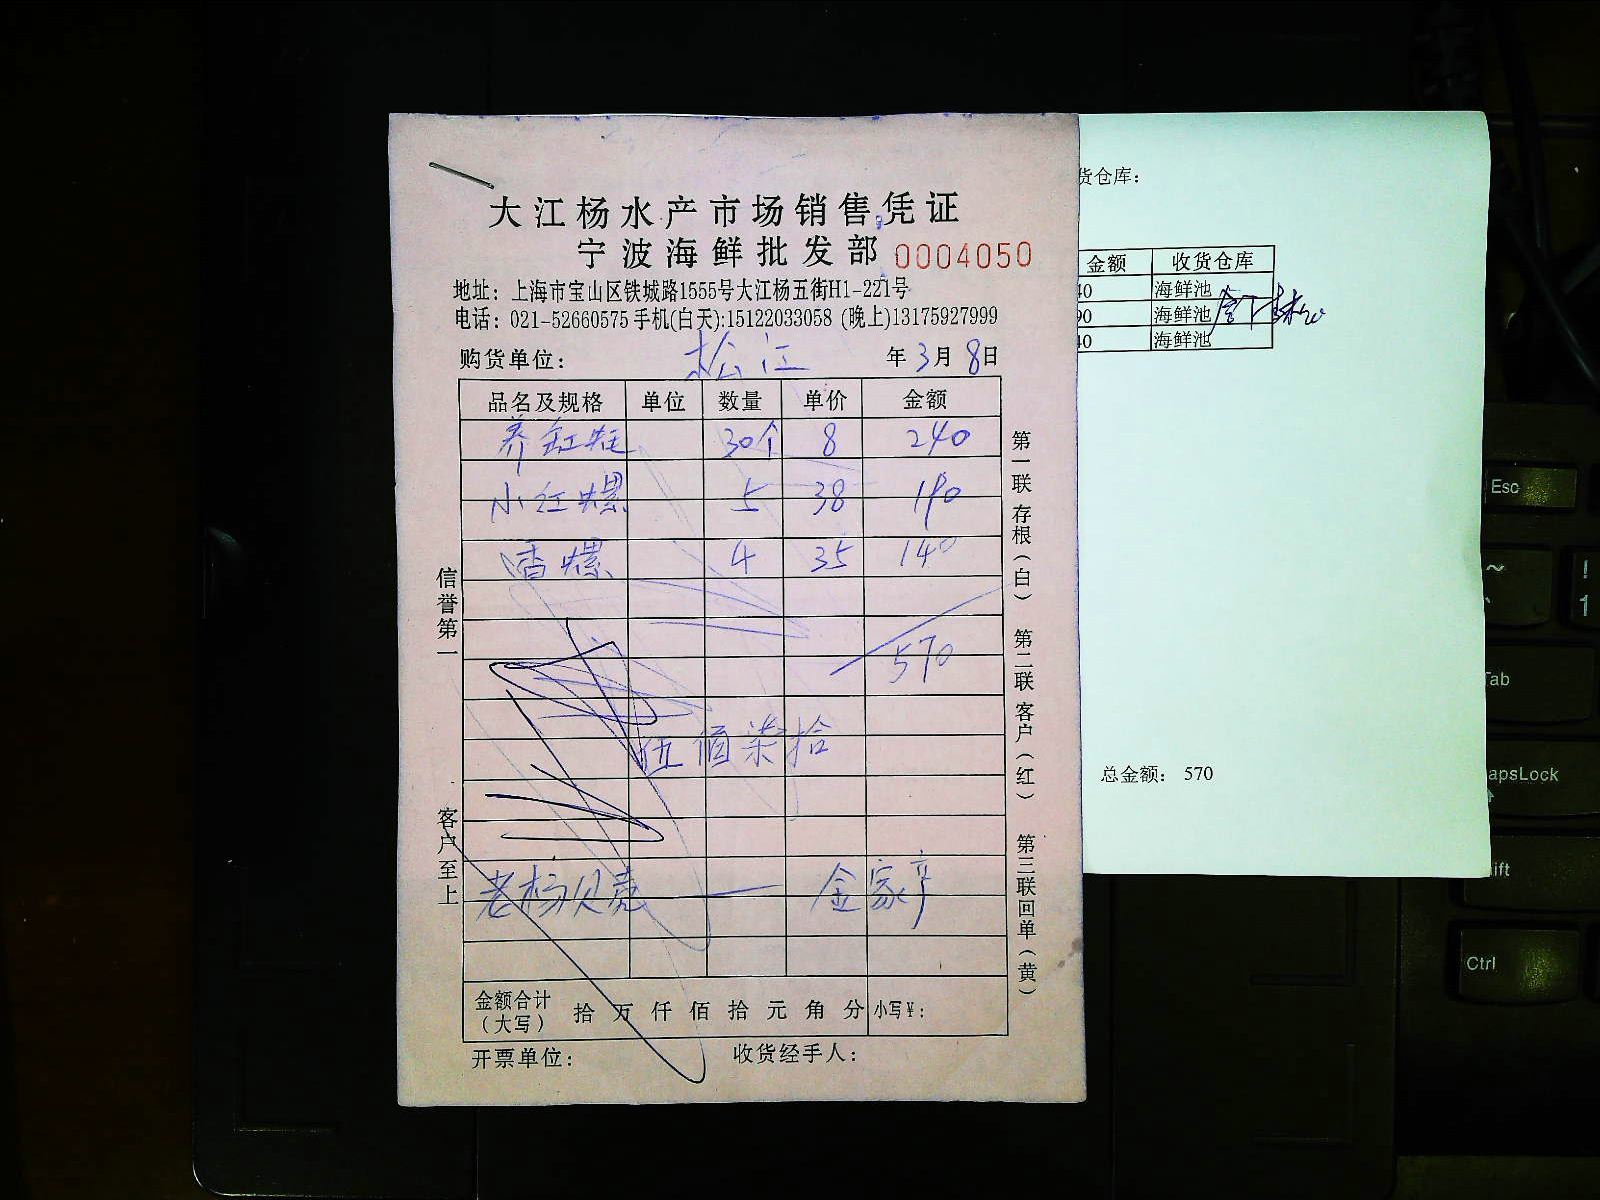 大江杨水产市场销售凭证
宁波海鲜批发部 0004050
地址：上海市宝山区铁城路1555号大江杨五街H1-221号
电话：021-52660575 手机(白天):15122033058 (晚上)13175927999
购货单位： 松江 年3月8日
品名及规格 单位 数量 单价 金额
30个 8 240
小红螺 5 38 190
香螺 4 35 140
570
伍佰柒拾
老杨贝壳 — 金家亭
金额合计（大写） 拾 万 仟 佰 拾 元 角 分 小写¥：
开票单位： 收货经手人：
信誉第一
客户至上
第一联 存根（白） 第二联 客户（红） 第三联 回单（黄）
货仓库：
金额 收货仓库
40 海鲜池
90 海鲜池
40 海鲜池
总金额： 570
Esc
~
!
1
Tab
apsLock
hift
Ctrl